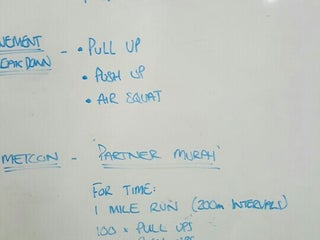 VEMENT - • PULL UP
EAKDOWN
• PUSH UP
• AIR SQUAT
METCON - 'PARTNER MURPH'
FOR TIME:
1 MILE RUN (200m INTERVALS)
100 x PULL UPS